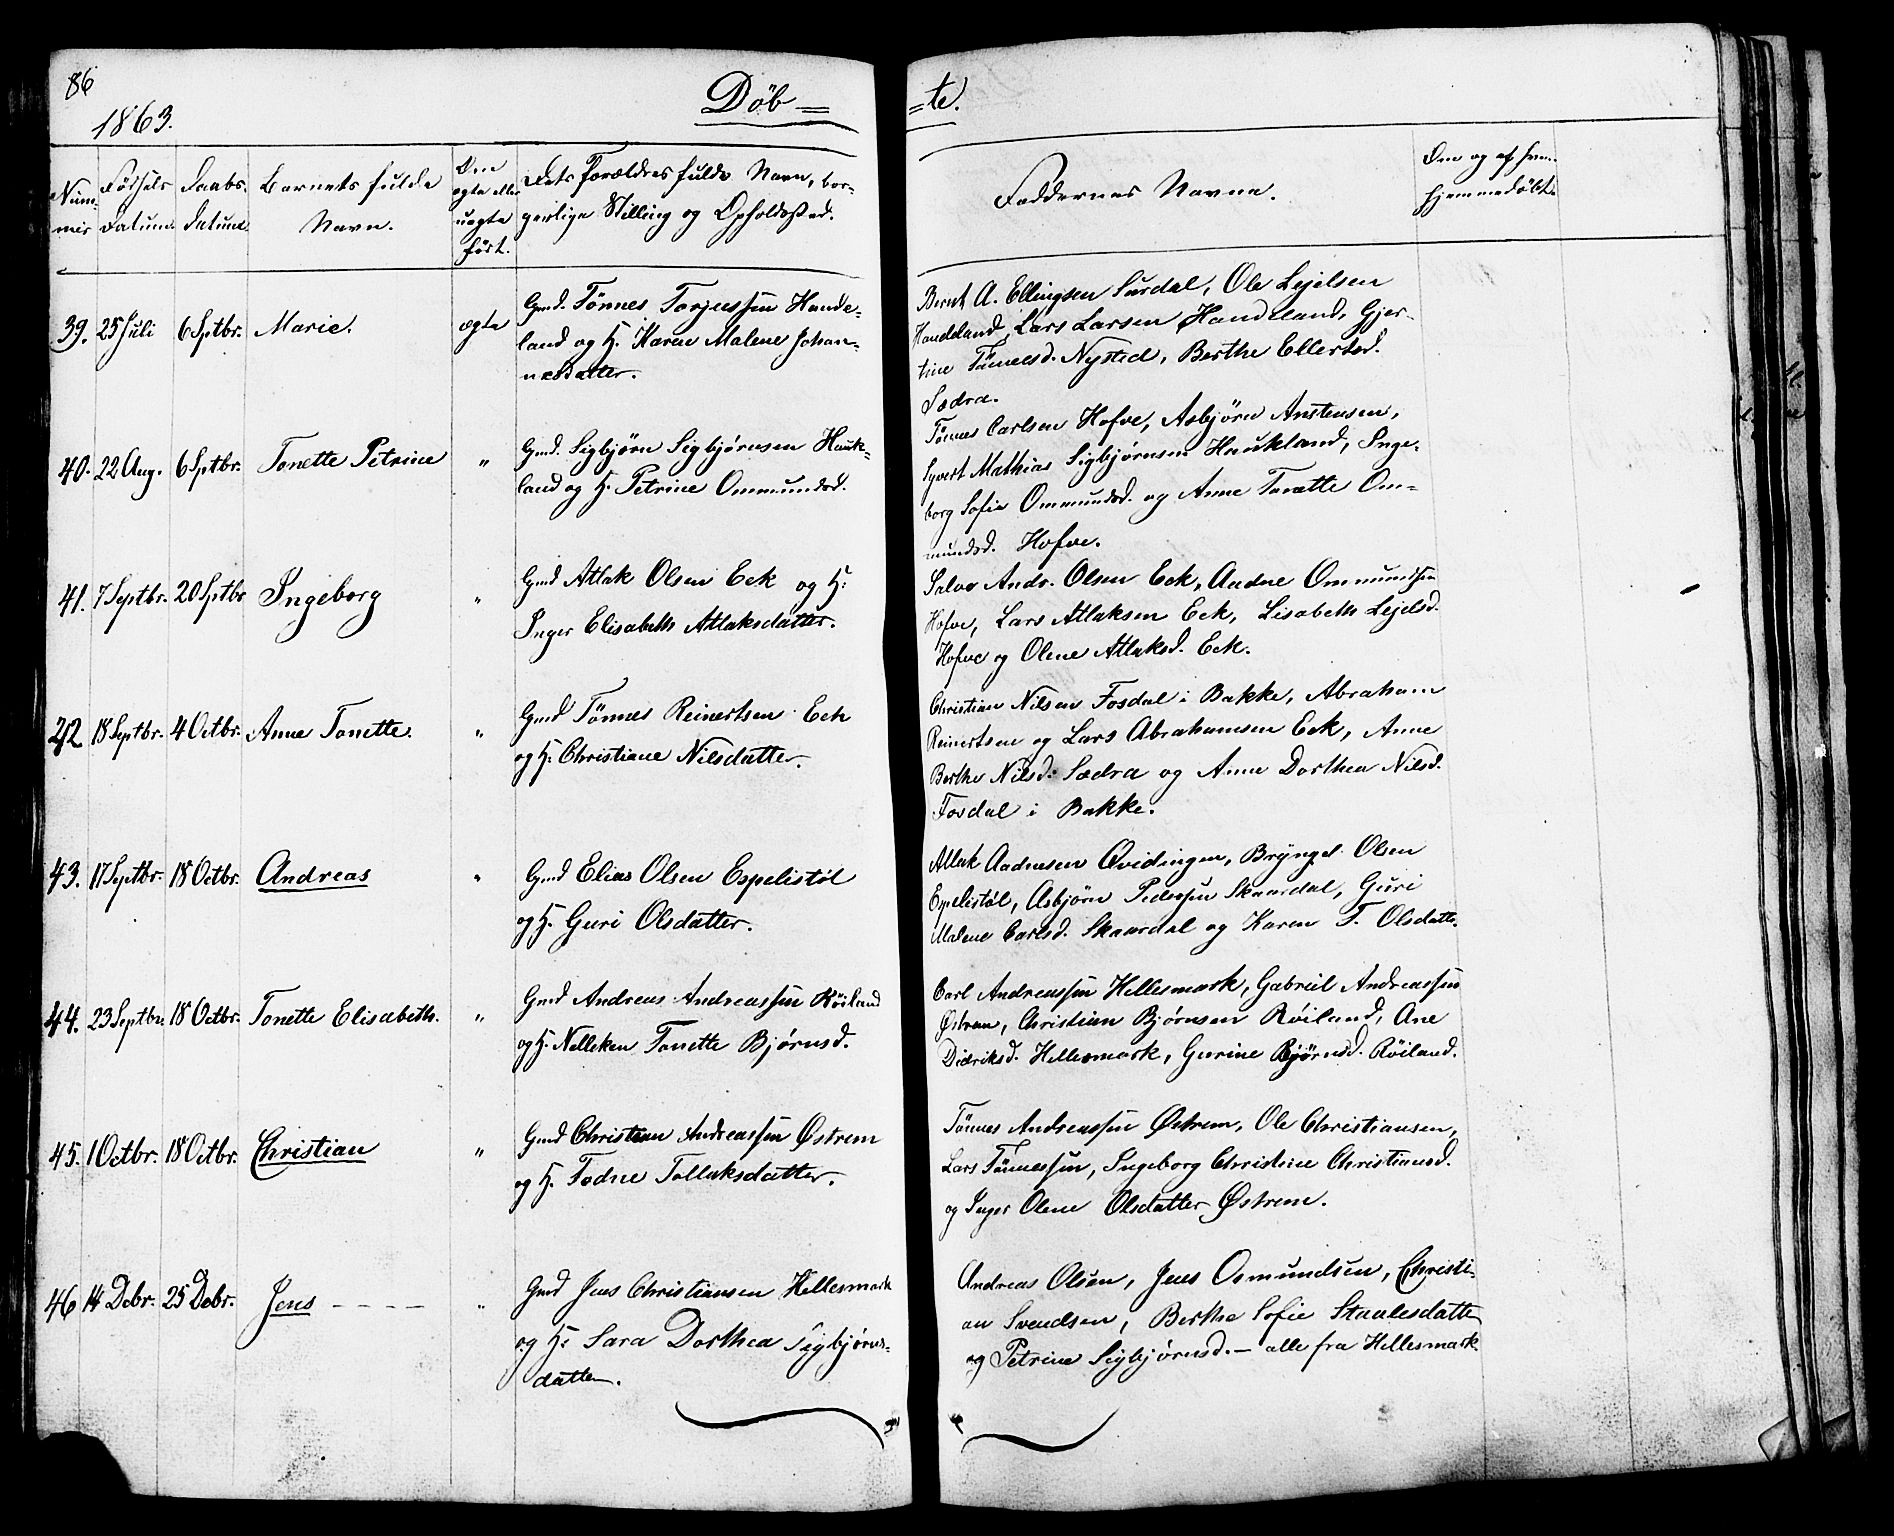 86
1863.
Döb=
=te.
Num-
mer
Födsels
Datum.
Daabs.
Datum.
Barnets fulde
Navn.
Om
ægte eller
uægte
födt.
Dets Forældres fulde Navn, bor-
gerlige Stilling og Opholdssted.
Faddernes Navne.
Om og af hvem
hjemmedöbt.
39. 25 Juli 6 Sptbr. Marie. ægte
Gmd. Tönnes Torjussen Hande-
land og H. Karen Malene Johan-
nesdatter.
Bernt A. Ellingsen Surdal, Ole Lejelsen
Handeland, Lars Larsen Handeland, Gjer-
tine Tönnesd. Nysted, Berthe Ellertsd.
Sædra.
40. 22 Aug. 6 Sptbr. Tonette Petrine "
Gmd. Sigbjörn Sigbjørnsen Hauk-
land og H. Petrine Ommundsd.
Tönnes Carlsen Hofve, Asbjörn Anstensen,
Syvert Mathias Sigbjørnsen Haukland, Inge-
borg Sofie Ommundsd. og Anne Tonette Om-
mundsd. Hofve.
41. 7 Septbr. 20 Sptbr Ingeborg "
Gmd Atlak Olsen Eek og H:
Inger Elisabeth Atlaksdatter.
Salve Andr. Olsen Eek, Aadne Ommundsen
Hofve, Lars Atlaksen Eek, Lisabeth Lejelsd.
Hofve og Olene Atlaksd. Eek.
42 18 Septbr. 4 Octbr. Anne Tonette. "
Gmd Tönnes Reinertsen Eek
og H. Christiane Nilsdatter.
Christian Nilsen Fosdal i Bakke, Abraham
Reinertsen og Lars Abrahamsen Eek, Anne
Berthe Nilsd. Sædra og Anne Dorthea Nilsd.
Fosdal i Bakke.
43. 17 Septbr. 18 Octbr. Andreas "
Gmd Elias Olsen Espelistöl
og H. Guri Olsdatter.
Atlak Aadnesen Qvidingen, Brÿngel Olsen
Espelistøl, Asbjörn Pedersen Skaardal, Guri
Malene Carlsd. Skaardal og Karen T. Olsdatter.
44. 23 Septbr. 18 Octbr. Tonette Elisabeth. "
Gmd Andreas Andreassen Röiland
og H. Nelleken Tonette Bjørnsd.
Carl Andreassen Hellesmark, Gabriel Andreassen
Østrem, Christian Bjørnsen Røiland, Ane
Didriksd. Hellesmark, Gurine Bjørnsd. Røiland.
45. 1 Octbr. 18 Octbr. Christian "
Gmd Christian Andreassen Østrem
og H. Todne Tollaksdatter.
Tönnes Andreassen Østrem, Ole Christiansen,
Lars Tönnessen, Ingeborg Christine Christiansd.
og Inger Olene Olsdatter Østrem.
46 14 Debr. 25 Debr. Jens - - - - "
Gmd Jens Christiansen Hellesmark
og H. Sara Dorthea Sigbjørns-
datter.
Andreas Olsen, Jens Osmundsen, Christi-
an Svendsen, Berthe Sofie Staalesdatter
og Petrine Sigbjørnsd. – alle fra Hellesmark.